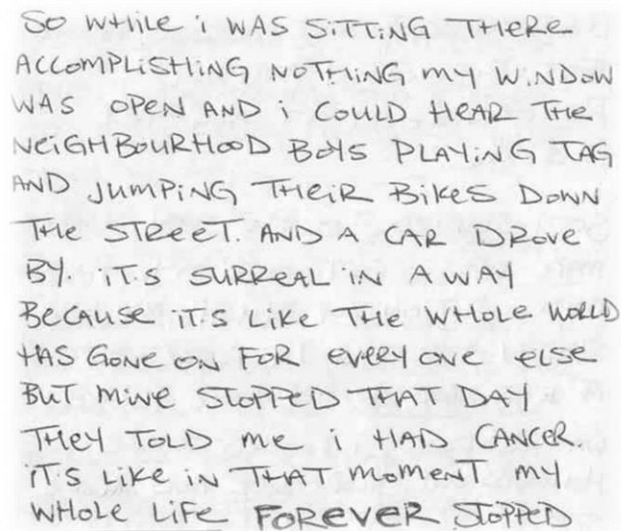 SO WHILE i WAS SiTTiNG THeRe
ACCOMPLiSHiNG NOTHiNG my WiNDOW
WAS OPEN AND i COULD HEAR THe
NeiGHBOURHOOD BOYS PLAYiNG TAG
AND JUMPiNG THEiR BiKES DOWN
THe STReeT. AND A CAR DROVE
BY. iT.S SURREAL iN A WAY
BeCAUSe iT'S LiKe THe WHOLe WORLD
HAS GONe ON FOR eVeRYONe eLSe
BUT miNe STOPPeD THAT DAY
THeY TOLD me i HAD CANCER.
iT'S LiKe iN THAT momeNT my
WHOLe LiFe FOREVER STOPPED